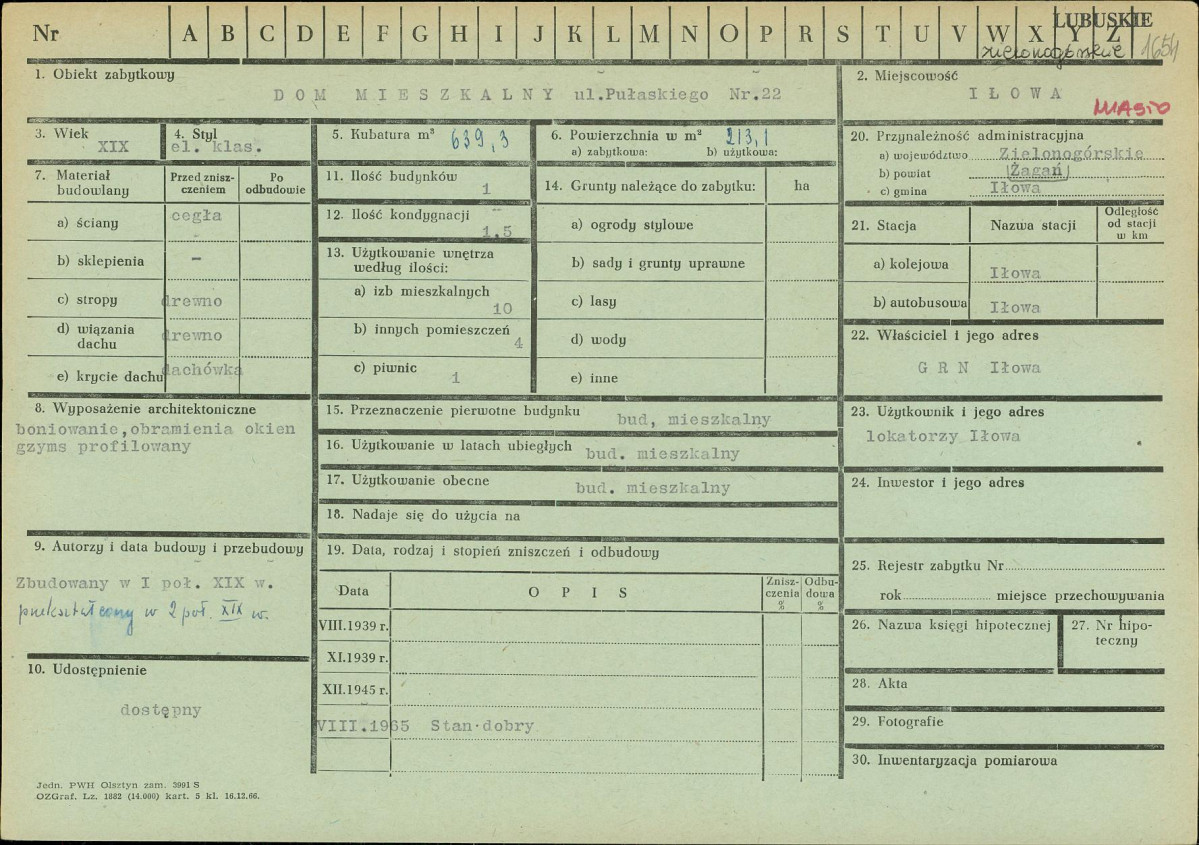 Nr A B C D E F G H I J K L M N O P R S T U V W X Y Z
LUBUSKIE
zielonogórskie 1654
1. Obiekt zabytkowy
DOM MIESZKALNY ul.Pułaskiego Nr.22
2. Miejscowość
IŁOWA
MIASTO
3. Wiek
XIX
4. Styl
el. klas.
5. Kubatura m³ 639,3
6. Powierzchnia w m² 213,1
a) zabytkowa: b) użytkowa:
7. Materiał budowlany
Przed znisz-
czeniem
Po
odbudowie
a) ściany cegła
b) sklepienia -
c) stropy drewno
d) wiązania
dachu drewno
e) krycie dachu dachówka
8. Wyposażenie architektoniczne
boniowanie,obramienia okien
gzyms profilowany
9. Autorzy i data budowy i przebudowy
Zbudowany w I poł. XIX w.
przekształcony w 2 poł. XIX w.
10. Udostępnienie
dostępny
Jedn. PWH Olsztyn zam. 3991 S
OZGraf. Lz. 1882 (14.000) kart. 5 kl. 16.12.66.
11. Ilość budynków
1
12. Ilość kondygnacji
1.5
13. Użytkowanie wnętrza
według ilości:
a) izb mieszkalnych
10
b) innych pomieszczeń
4
c) piwnic
1
14. Grunty należące do zabytku: ha
a) ogrody stylowe
b) sady i grunty uprawne
c) lasy
d) wody
e) inne
15. Przeznaczenie pierwotne budynku bud, mieszkalny
16. Użytkowanie w latach ubiegłych bud. mieszkalny
17. Użytkowanie obecne bud. mieszkalny
18. Nadaje się do użycia na
19. Data, rodzaj i stopień zniszczeń i odbudowy
Data OPIS
Znisz-
czenia
%
Odbu-
dowa
%
VIII.1939 r.
XI.1939 r.
XII.1945 r.
VIII.1965 Stan dobry
20. Przynależność administracyjna
a) województwo Zielonogórskie
b) powiat Żagań
c) gmina Iłowa
21. Stacja Nazwa stacji
Odległość
od stacji
w km
a) kolejowa Iłowa
b) autobusowa Iłowa
22. Właściciel i jego adres
GRN Iłowa
23. Użytkownik i jego adres
lokatorzy Iłowa
24. Inwestor i jego adres
25. Rejestr zabytku Nr
rok miejsce przechowywania
26. Nazwa księgi hipotecznej
27. Nr hipo-
teczny
28. Akta
29. Fotografie
30. Inwentaryzacja pomiarowa